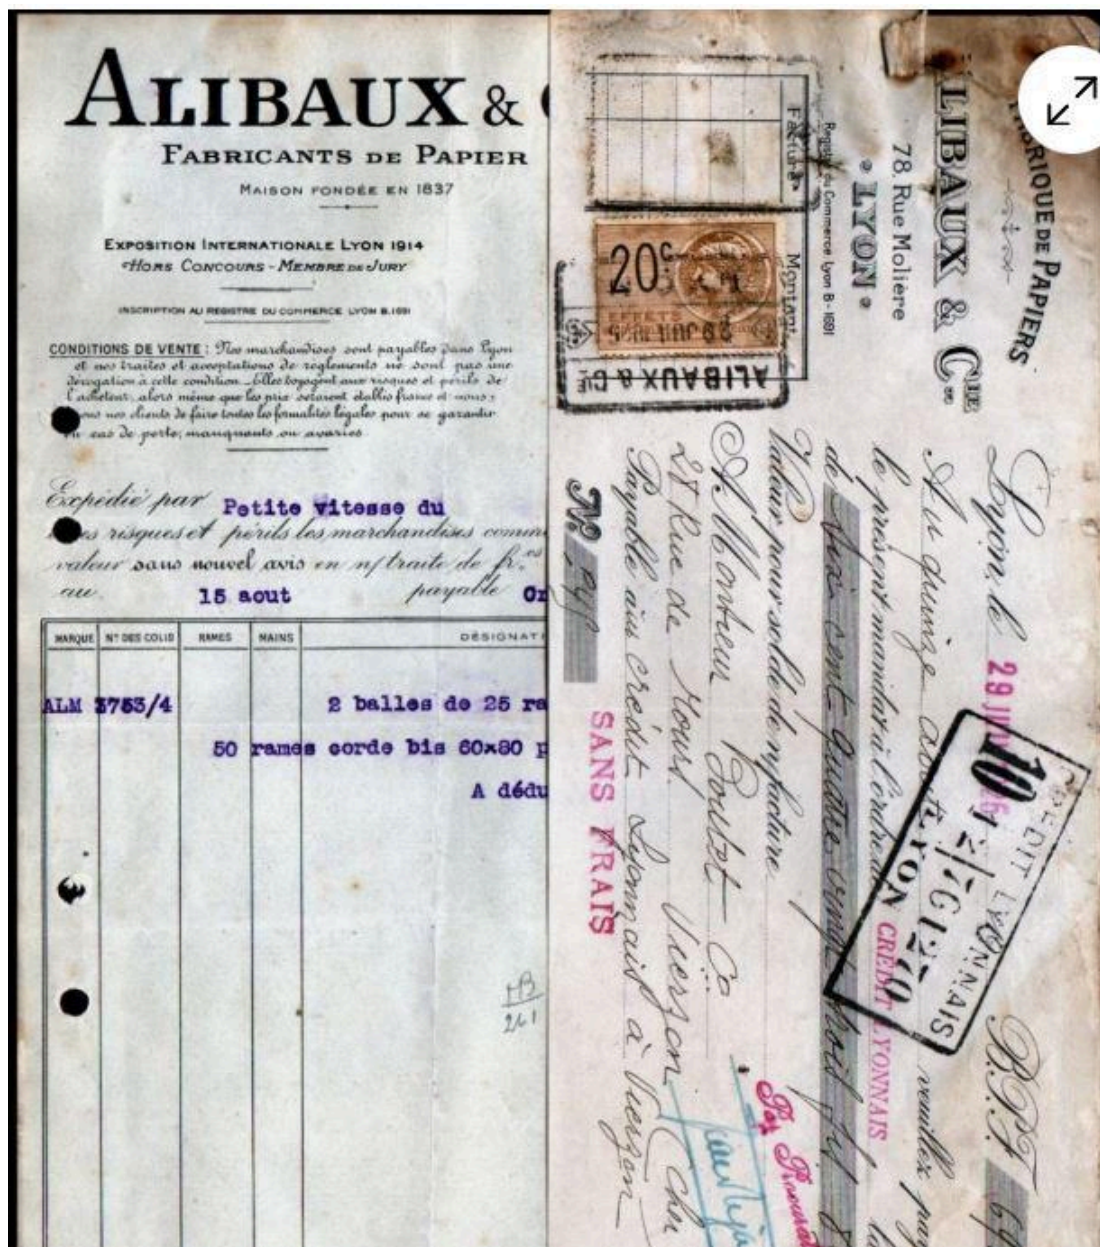 ALIBAUX &
FABRICANTS DE PAPIER
MAISON FONDÉE EN 1837
EXPOSITION INTERNATIONALE LYON 1914
HORS CONCOURS - MEMBRE DE JURY
INSCRIPTION AU REGISTRE DU COMMERCE LYON B.1691
CONDITIONS DE VENTE : Nos marchandises sont payables dans Lyon
et nos traites et acceptations de règlements ne sont pas une
dérogation à cette condition. Elles voyagent aux risques et périls de
l'acheteur, alors même que les prix seraient établis franco et nous
nos clients de faire toutes les formalités légales pour se garantir
en cas de perte, manquants ou avaries
Expédié par Petite vitesse du
risques et périls les marchandises comm
valeur sans nouvel avis en n/ traite de fr.cs
au 15 aout payable Or
MARQUE N° DES COLIS RAMES MAINS DÉSIGNATI
ALM 3753/4 2 balles de 25 ra
50 rames corde bis 60x80 p
A dédu
HB
261
FABRIQUE DE PAPIERS
ALIBAUX & Cie
78 Rue Molière
LYON
Registre du Commerce Lyon B-1691
Facture
Montant
20c
EFFETS
29 JUIL
ALIBAUX & Cie
Lyon, le 29 JUI B.P.F. 69
Au quinze août veuillez pay
le présent mandat à l'ordre du CREDIT LYONNAIS la
de Six cent quatre vingt
Valeur pour solde de n/ facture.
A Monsieur Boutet Co
28 Rue de Tours Vierzon Cher
Payable au crédit Lyonnais à Vierzon
No
SANS FRAIS
CREDIT LYONNAIS
10
LYON
76127
Par Procurat